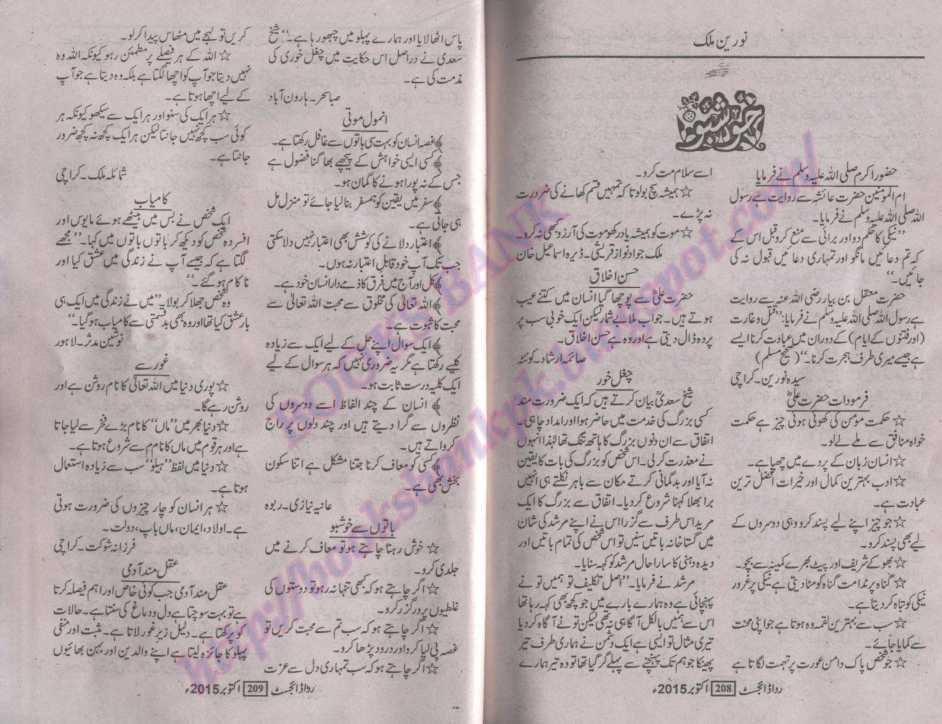 نورین ملک
خوشبو
حضور اکرم صلی اللہ علیہ وسلم نے فرمایا
ام المومنین حضرت عائشہ سے روایت ہے رسول
اللہ صلی اللہ علیہ وسلم نے فرمایا۔
”نیکی کا حکم دو اور برائی سے منع کرو قبل اس کے
کہ تم دعائیں مانگو اور تمہاری دعائیں قبول نہ کی
جائیں۔“
حضرت معقل بن یسار رضی اللہ عنہ سے روایت
ہے رسول اللہ صلی اللہ علیہ وسلم نے فرمایا: ”قتل و غارت
(اور فتنوں کے ایام) کے دوران میں عبادت کرنا ایسے
ہے جیسے میری طرف ہجرت کرنا۔“ (صحیح مسلم)
سیدہ نورین۔ کراچی
فرمودات حضرت علیؓ
☆ حکمت مومن کی کھوئی ہوئی چیز ہے حکمت
خواہ منافق سے ملے لے لو۔
☆ انسان زبان کے پردے میں چھپا ہے۔
☆ ادب بہترین کمال اور خیرات افضل ترین
عبادت ہے۔
☆ جو چیز اپنے لیے پسند کرو وہی دوسروں کے
لیے بھی پسند کرو۔
☆ بھوکے شریف اور پیٹ بھرے کمینہ سے بچو۔
☆ گناہ پر ندامت گناہ کو مٹا دیتی ہے نیکی پر غرور
نیکی کو تباہ کر دیتا ہے۔
☆ سب سے بہترین لقمہ وہ ہوتا ہے جو اپنی محنت
سے کمایا جائے۔
☆ جو شخص پاک دامن عورت پر تہمت لگاتا ہے
اسے سلام مت کرو۔
☆ ہمیشہ سچ بولو تا کہ تمہیں قسم کھانے کی ضرورت
نہ پڑے۔
☆ موت کو ہمیشہ یاد رکھو موت کی آرزو کبھی نہ کرو۔
ملک جواد نواز قریشی۔ ڈیرہ اسماعیل خان
حسن اخلاق
حضرت علیؓ سے پوچھا گیا انسان میں کتنے عیب
ہوتے ہیں۔ جواب ملا بے شمار لیکن ایک خوبی سب پر
پردہ ڈال دیتی ہے اور وہ ہے حسن اخلاق۔
صائمہ ارشاد کوئٹہ
چغل خور
شیخ سعدیؒ بیان کرتے ہیں کہ ایک ضرورت مند
کسی بزرگ کی خدمت میں حاضر ہوا اور امداد چاہی۔
اتفاق سے ان دنوں بزرگ کا ہاتھ تنگ تھا لہٰذا انہوں
نے معذرت کر لی۔ اس شخص کو بزرگ کی بات کا یقین
نہ آیا اور بدگمانی کرتے مکان سے باہر نکلتے ہی انہیں
برا بھلا کہنا شروع کر دیا۔ اتفاق سے بزرگ کا ایک
مرید اس طرف سے گزرا اس نے اپنے مرشد کی شان
میں گستاخانہ باتیں سنیں تو اس شخص کی تمام باتیں اور
دیدہ دہنی کا سارا حال مرشد کو کہہ سنایا۔
مرشد نے فرمایا۔ ”اصل تکلیف تو ہمیں تو نے
پہنچائی ہے وہ ہمارے بارے میں جو کچھ بھی کہہ رہا تھا
اس سے ہمیں بالکل آگاہی نہ تھی لیکن تو نے آگاہ کر دیا
تیری مثال تو ایسی ہے ایک دشمن نے ہماری طرف تیر
پھینکا جو ہم تک پہنچنے سے پہلے گر گیا تھا تو وہ تیر ہمارے
رواڈائجسٹ 208 اکتوبر 2015ء
پاس اٹھا لایا اور ہمارے پہلو میں چبھو رہا ہے۔“ شیخ
سعدی نے دراصل اس حکایت میں چغل خوری کی
مذمت کی ہے۔
صبا سحر۔ ہارون آباد
انمول موتی
﴾ غصہ انسان کو بہت سی باتوں سے غافل رکھتا ہے۔
﴾ کسی ایسی خواہش کے پیچھے بھاگنا فضول ہے
جس کے نہ پورا ہونے کا گمان ہو۔
﴾ سفر میں یقین کو ہمسفر بنا لیا جائے تو منزل مل
ہی جاتی ہے۔
﴾ اعتبار دلانے کی کوشش بھی اعتبار نہیں دلا سکتی
جب تک آپ خود قابل اعتبار نہ ہوں۔
﴾ کل اور آج میں فرق کا ذمے دار انسان خود ہے۔
﴾ اللہ تعالیٰ کی مخلوق سے محبت اللہ تعالیٰ سے
محبت کا ثبوت ہے۔
﴾ ایک سوال اپنے حل کے لیے ایک سے زیادہ
کلیے رکھتا ہے مگر یہ ضروری نہیں کہ ہر سوال کے لیے
ایک کلیہ درست ثابت ہو۔
﴾ انسان کے چند الفاظ اسے دوسروں کی
نظروں سے گرا دیتے ہیں اور چند دلوں پر راج
کرواتے ہیں۔
﴾ کسی کو معاف کرنا جتنا مشکل ہے اتنا سکون
بخش بھی ہے۔
عانیہ نیازی۔ ربوہ
باتوں سے خوشبو
☆ خوش رہنا چاہتے ہو تو معاف کرنے میں
جلدی کرو۔
☆ اگر چاہتے ہو کہ کبھی تنہا نہ رہو تو دوستوں کی
غلطیوں پر درگزر کرو۔
☆ اگر چاہتے ہو کہ سب تم سے محبت کریں تو
غصہ پی لیا کرو اور درود پڑھا کرو۔
☆ اگر چاہتے ہو کہ سب تمہاری دل سے عزت
کریں تو لہجے میں مٹھاس پیدا کر لو۔
☆ اللہ کے ہر فیصلے پر مطمئن رہو کیونکہ اللہ وہ
نہیں دیتا جو آپ کو اچھا لگتا ہے بلکہ وہ دیتا ہے جو آپ
کے لیے اچھا ہوتا ہے۔
☆ ہر ایک کی سنو اور ہر ایک سے سیکھو کیونکہ ہر
کوئی سب کچھ نہیں جانتا لیکن ہر ایک کچھ نہ کچھ ضرور
جانتا ہے۔
شمائلہ ملک۔ کراچی
کامیاب
ایک شخص نے بس میں بیٹھے ہوئے مایوس اور
افسردہ شخص کو دیکھ کر باتوں باتوں میں کہا۔ ”مجھے
لگتا ہے کہ جیسے آپ نے زندگی میں عشق کیا اور
ناکام ہو گئے۔“
وہ شخص جھلا کر بولا۔ ”میں نے زندگی میں ایک ہی
بار عشق کیا تھا اور وہ بھی بدقسمتی سے کامیاب ہو گیا۔“
نوشین مدثر۔ لاہور
غور سے
☆ پوری دنیا میں اللہ تعالیٰ کا نام روشن ہے اور
روشن رہے گا۔
☆ دنیا بھر میں ”ماں“ کا نام بڑے فخر سے لیا جاتا
ہے اور ہر قوم میں ماں کا نام م سے شروع ہوتا ہے۔
☆ دنیا میں لفظ ”ہیلو“ سب سے زیادہ استعمال
ہوتا ہے۔
☆ ہر انسان کو چار چیزوں کی ضرورت ہوتی
ہے۔ اولاد، ایمان، ماں باپ، دولت۔
فرزانہ شوکت۔ کراچی
عقل مند آدمی
عقل مند آدمی جب کوئی خاص اور اہم فیصلہ کرتا
ہے تو بہت سوچتا ہے دل و دماغ کی سنتا ہے۔ حالات
کو پرکھتا ہے۔ دلیل زیر غور لاتا ہے۔ مثبت اور منفی
پہلو کا جائزہ لیتا ہے اپنے والدین اور بہن بھائیوں
رواڈائجسٹ 209 اکتوبر 2015ء
BOOKS BANK
http://booksbankpk.blogspot.com/